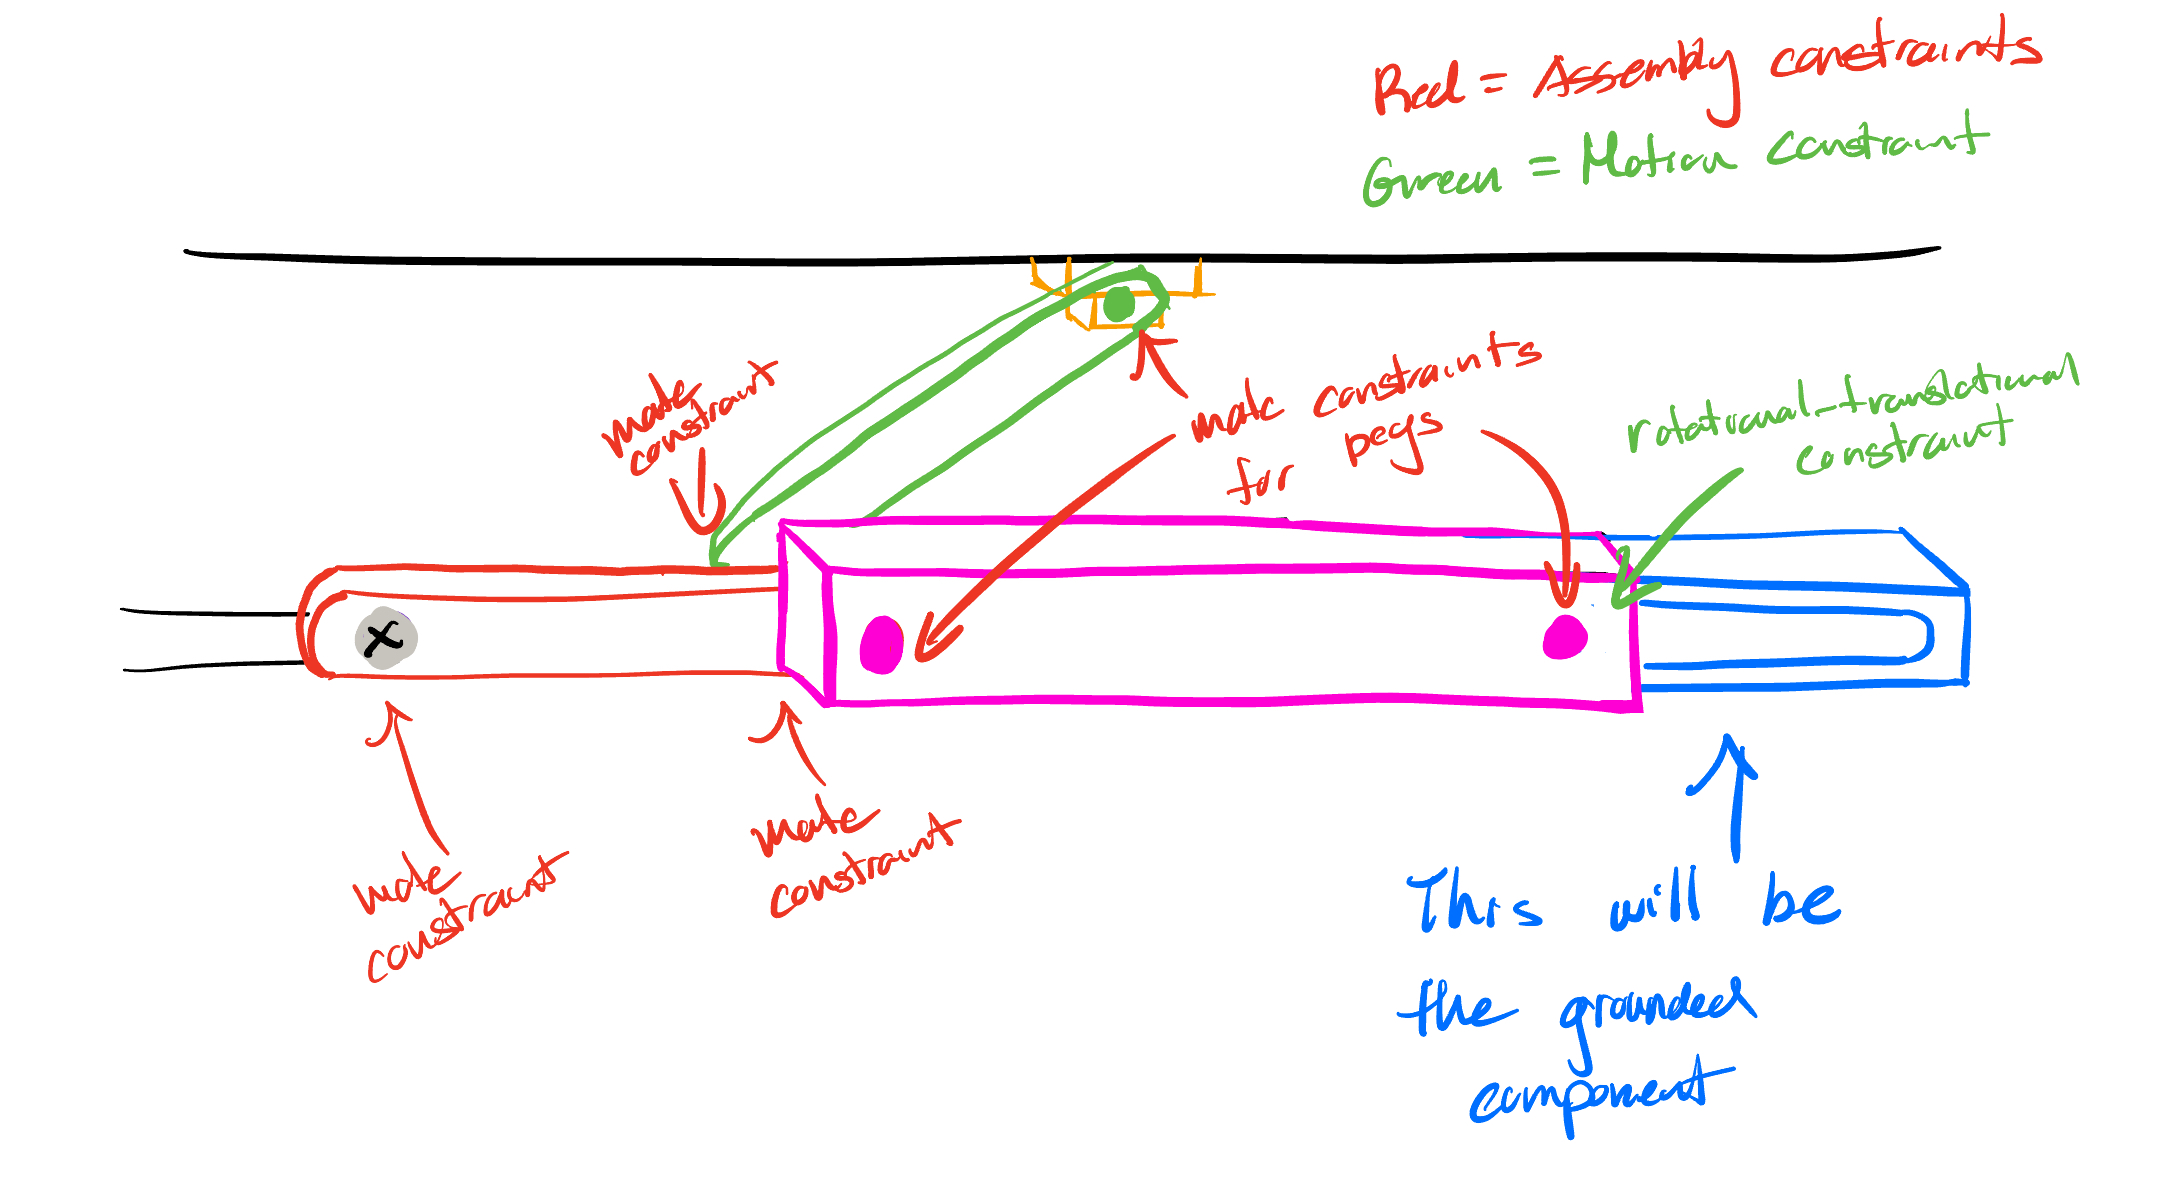 Red = Assembly constraints
Green = Motion constraint
mate
constraint
mate constraints
for pegs
rotational-translational
constraint
X
mate
constraint
mate
constraint
This will be
the grounded
component